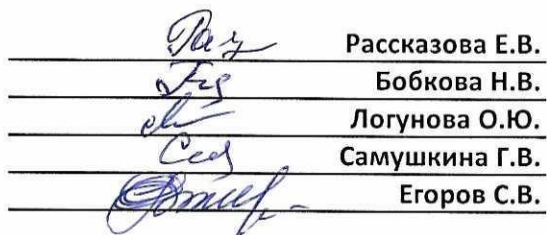 Рассказова Е.В.
Бобкова Н.В.
Логунова О.Ю.
Самушкина Г.В.
Егоров С.В.